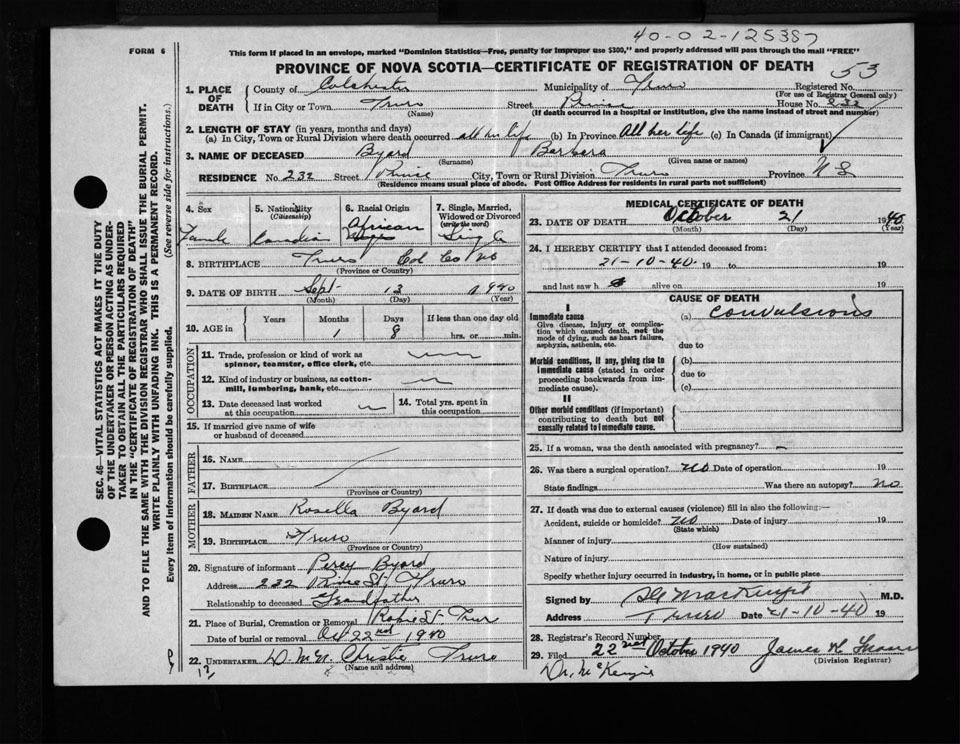 40-02-125387
FORM 6
This form if placed in an envelope, marked "Dominion Statistics—Free, penalty for improper use $300," and properly addressed will pass through the mail "FREE"
PROVINCE OF NOVA SCOTIA—CERTIFICATE OF REGISTRATION OF DEATH 53
SEC. 46—VITAL STATISTICS ACT MAKES IT THE DUTY
OF THE UNDERTAKER OR PERSON ACTING AS UNDER-
TAKER TO OBTAIN ALL THE PARTICULARS REQUIRED
IN THE "CERTIFICATE OF REGISTRATION OF DEATH"
AND TO FILE THE SAME WITH THE DIVISION REGISTRAR WHO SHALL ISSUE THE BURIAL PERMIT.
WRITE PLAINLY WITH UNFADING INK. THIS IS A PERMANENT RECORD.
Every item of information should be carefully supplied. (See reverse side for instructions.)
1. PLACE OF DEATH
County of Colchester Municipality of Truro Registered No.
(For use of Registrar General only)
If in City or Town Truro Street Prince House No. 232
(Name) (If death occurred in a hospital or institution, give the name instead of street and number)
2. LENGTH OF STAY (in years, months and days)
(a) In City, Town or Rural Division where death occurred all her life (b) In Province All her life (c) In Canada (if immigrant)
3. NAME OF DECEASED Byard Barbara
(Surname) (Given name or names)
RESIDENCE No. 232 Street Prince City, Town or Rural Division Truro Province N S
(Residence means usual place of abode. Post Office Address for residents in rural parts not sufficient)
4. Sex
5. Nationality (Citizenship)
6. Racial Origin
African
7. Single, Married, Widowed or Divorced (write the word)
Single
8. BIRTHPLACE Truro Col Co NS
(Province or Country)
9. DATE OF BIRTH Sept 13 1940
(Month) (Day) (Year)
10. AGE in
Years Months Days If less than one day old
1 8 hrs. or min.
OCCUPATION
11. Trade, profession or kind of work as
spinner, teamster, office clerk, etc.
12. Kind of industry or business, as cotton-
mill, lumbering, bank, etc.
13. Date deceased last worked
at this occupation
14. Total yrs. spent in
this occupation
15. If married give name of wife
or husband of deceased
FATHER
16. NAME
17. BIRTHPLACE
(Province or Country)
MOTHER
18. MAIDEN NAME Rosella Byard
19. BIRTHPLACE Truro
(Province or Country)
20. Signature of informant Percy Byard
Address 232 Prince St Truro
Relationship to deceased Grandfather
21. Place of Burial, Cremation or Removal Robie St Truro
Date of burial or removal Oct 22nd 1940
22. UNDERTAKER D. McN Christie Truro
(Name and address)
MEDICAL CERTIFICATE OF DEATH
23. DATE OF DEATH October 21 1940
(Month) (Day) (Year)
24. I HEREBY CERTIFY that I attended deceased from:
21-10-40. 19 to 19
and last saw h alive on 19
CAUSE OF DEATH
I
Immediate cause
Give disease, injury or complica-
tion which caused death, not the
mode of dying, such as heart failure,
asphyxia, asthenia, etc.
(a) Convulsions
due to
Morbid conditions, if any, giving rise to
immediate cause (stated in order
proceeding backwards from im-
mediate cause).
(b)
due to
(c)
II
Other morbid conditions (if important)
contributing to death but not
causally related to immediate cause.
25. If a woman, was the death associated with pregnancy?
26. Was there a surgical operation? No Date of operation 19
State findings Was there an autopsy? No
27. If death was due to external causes (violence) fill in also the following:—
Accident, suicide or homicide? No Date of injury 19
(State which)
Manner of injury
(How sustained)
Nature of injury
Specify whether injury occurred in industry, in home, or in public place
Signed by MacKenzie M.D.
Address Truro Date 21-10-40 19
28. Registrar's Record Number
29. Filed 22nd October 1940 James
(Division Registrar)
Dr. McKenzie